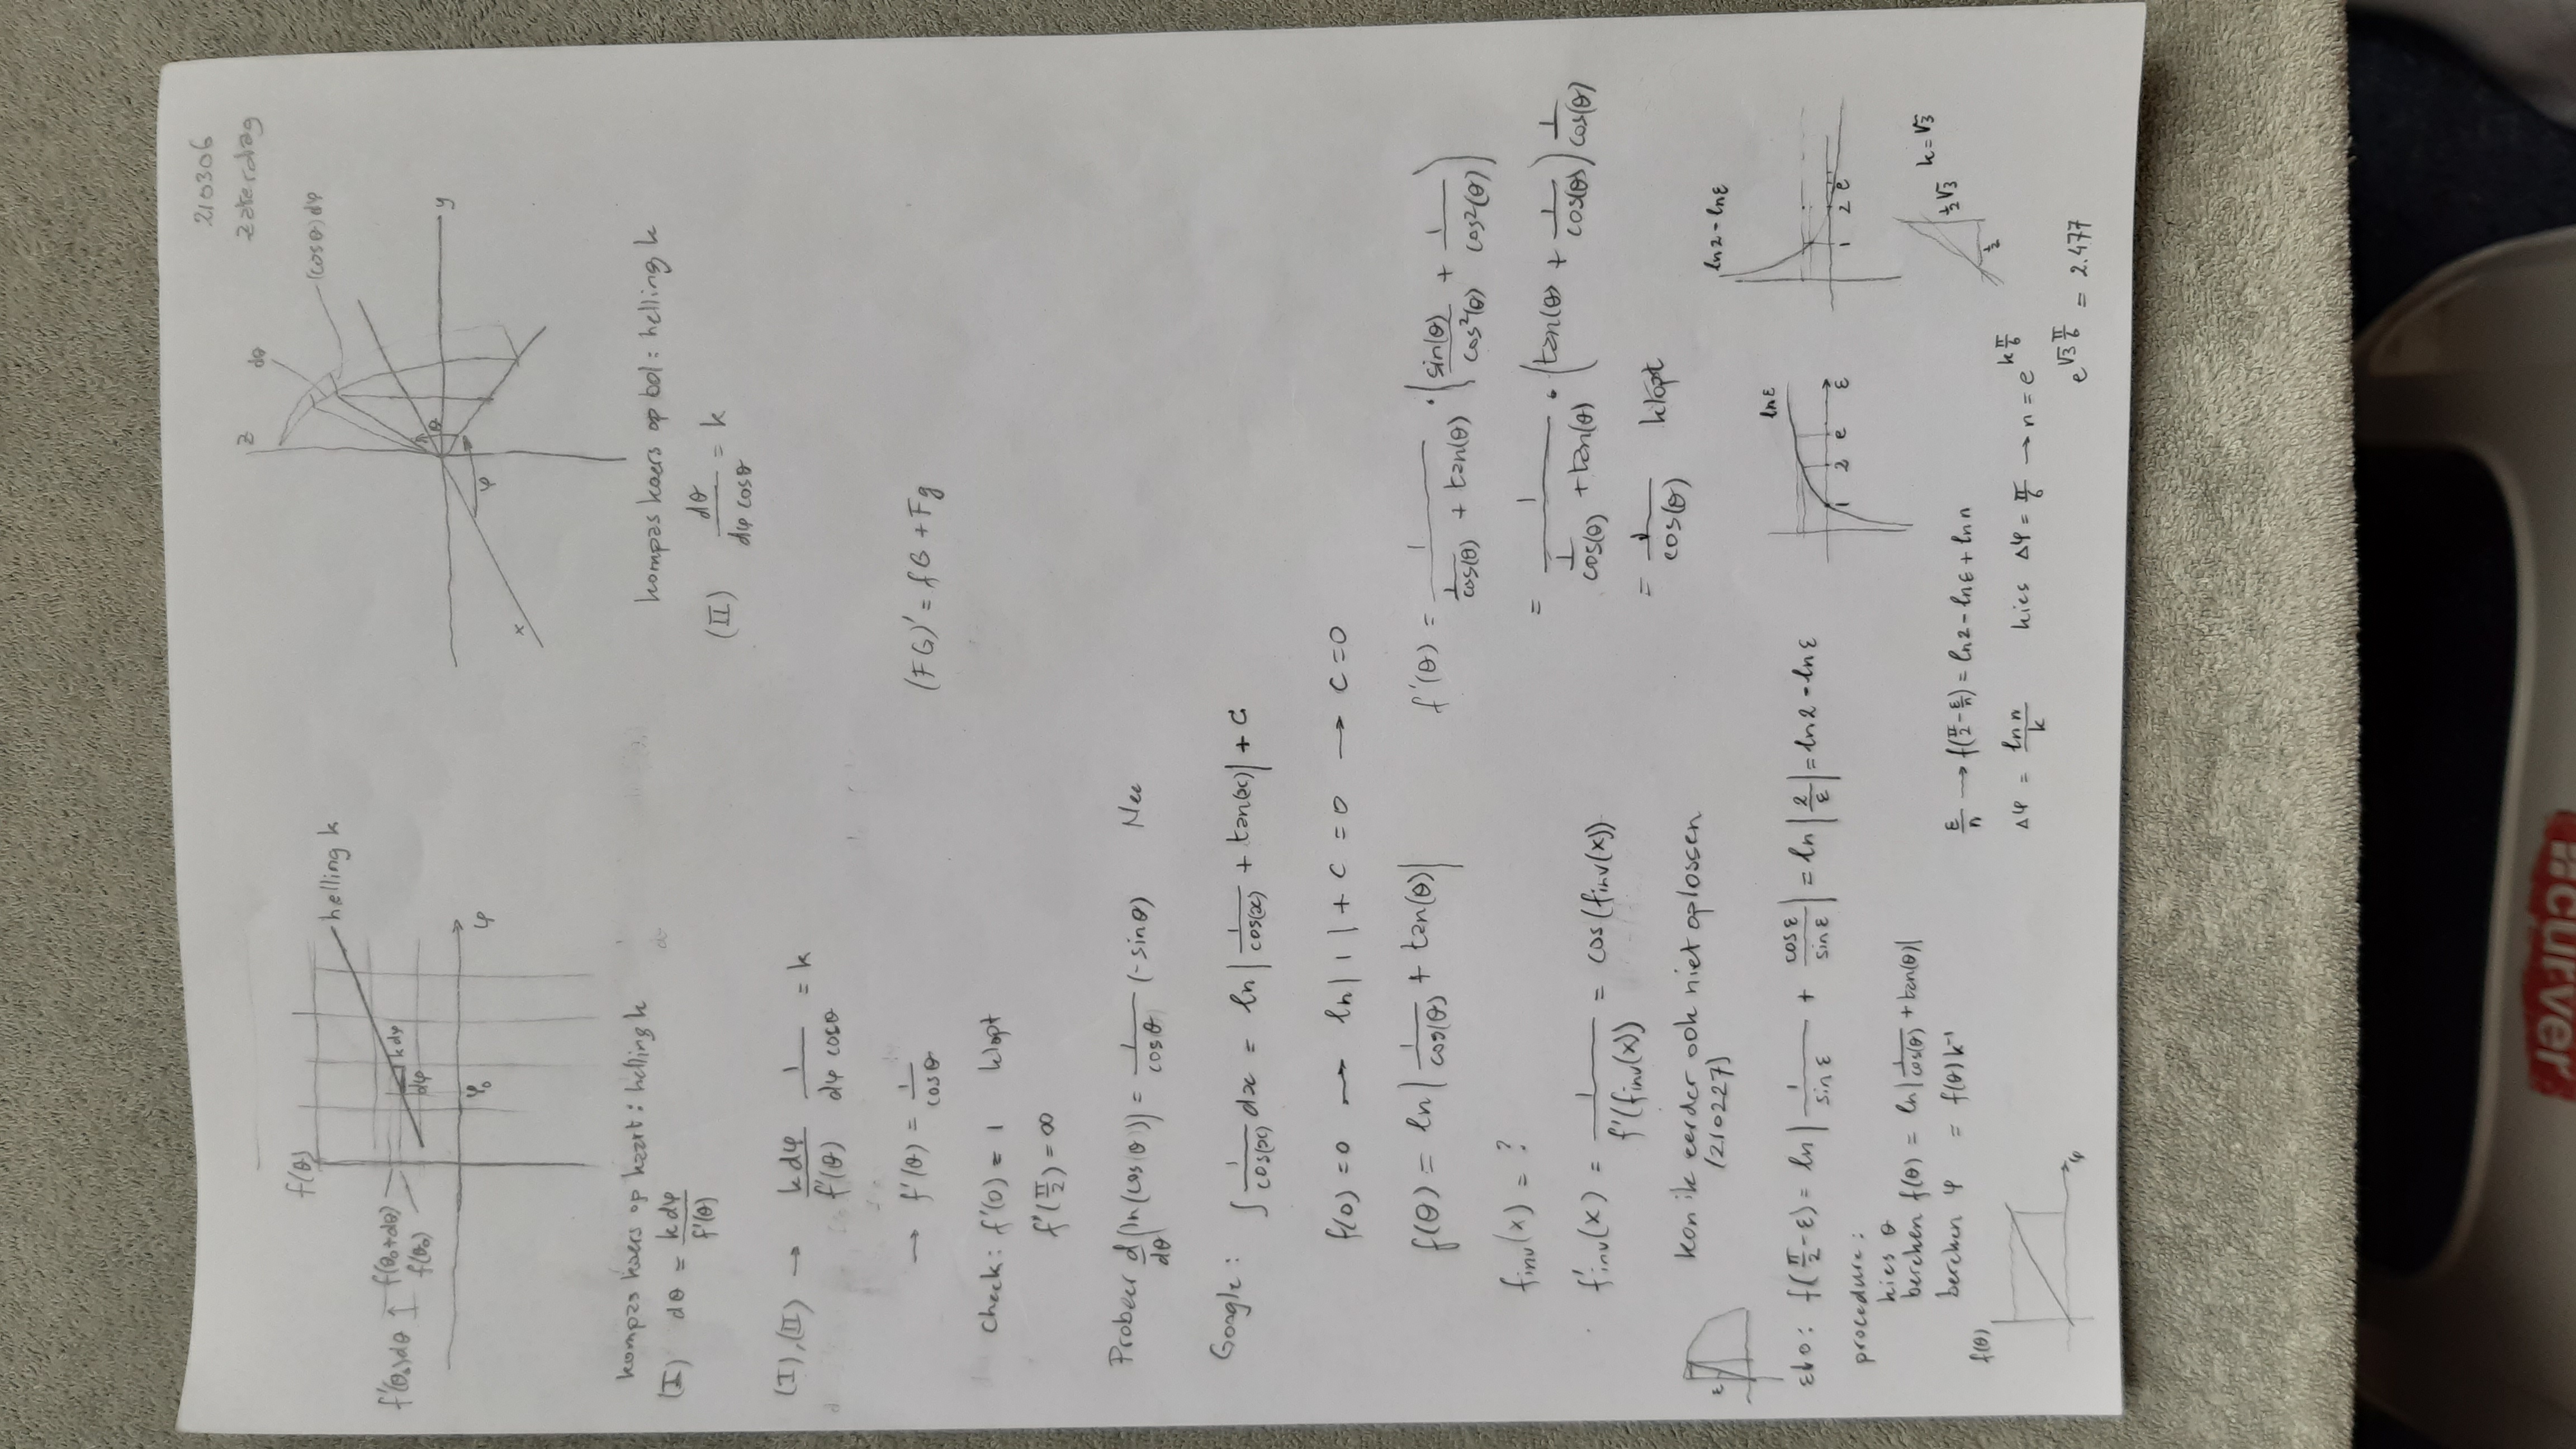 210306
zaterdag
f(θ)
helling k
f'(θ₀)dθ
f(θ₀+dθ)
f(θ₀)
k dφ
dφ
φ₀
φ
z
dθ
(cosθ)dφ
θ
y
φ
x
kompas koers op kaart: helling k
(I) dθ = k dφ / f'(θ)
kompas koers op bol: helling k
(II) dθ / (dφ cosθ) = k
(I),(II) → k dφ / f'(θ) · 1 / (dφ cosθ) = k
→ f'(θ) = 1/cosθ
(FG)' = fG + Fg
check: f'(0) = 1 klopt
f'(π/2) = ∞
Probeer d/dθ (ln(cos(θ))) = 1/cosθ (-sinθ) Nee
Google: ∫ 1/cos(x) dx = ln|1/cos(x) + tan(x)| + C
f(0) = 0 → ln|1| + C = 0 → C = 0
f(θ) = ln|1/cos(θ) + tan(θ)|
f'(θ) = 1/(1/cos(θ) + tan(θ)) · (sin(θ)/cos²(θ) + 1/cos²(θ))
= 1/(1/cos(θ) + tan(θ)) · (tan(θ) + 1/cos(θ)) 1/cos(θ)
= 1/cos(θ) klopt
finv(x) = ?
f'inv(x) = 1/f'(finv(x)) = cos(finv(x))
kon ik eerder ook niet oplossen
(210227)
ε
ε↓0: f(π/2 - ε) = ln|1/sin ε + cos ε/sin ε| = ln|2/ε| = ln2 - lnε
lnε
1 2 e ε
ln2 - lnε
1 2 e
procedure:
kies θ
bereken f(θ) = ln|1/cos(θ) + tan(θ)|
bereken φ = f(θ) k⁻¹
f(θ)
φ
ε/n → f(π/2 - ε/n) = ln2 - lnε + ln n
Δφ = ln n / k kies Δφ = π/6 → n = e^(k π/6)
e^(√3 π/6) = 2.477
k = √3
½√3
½
curver